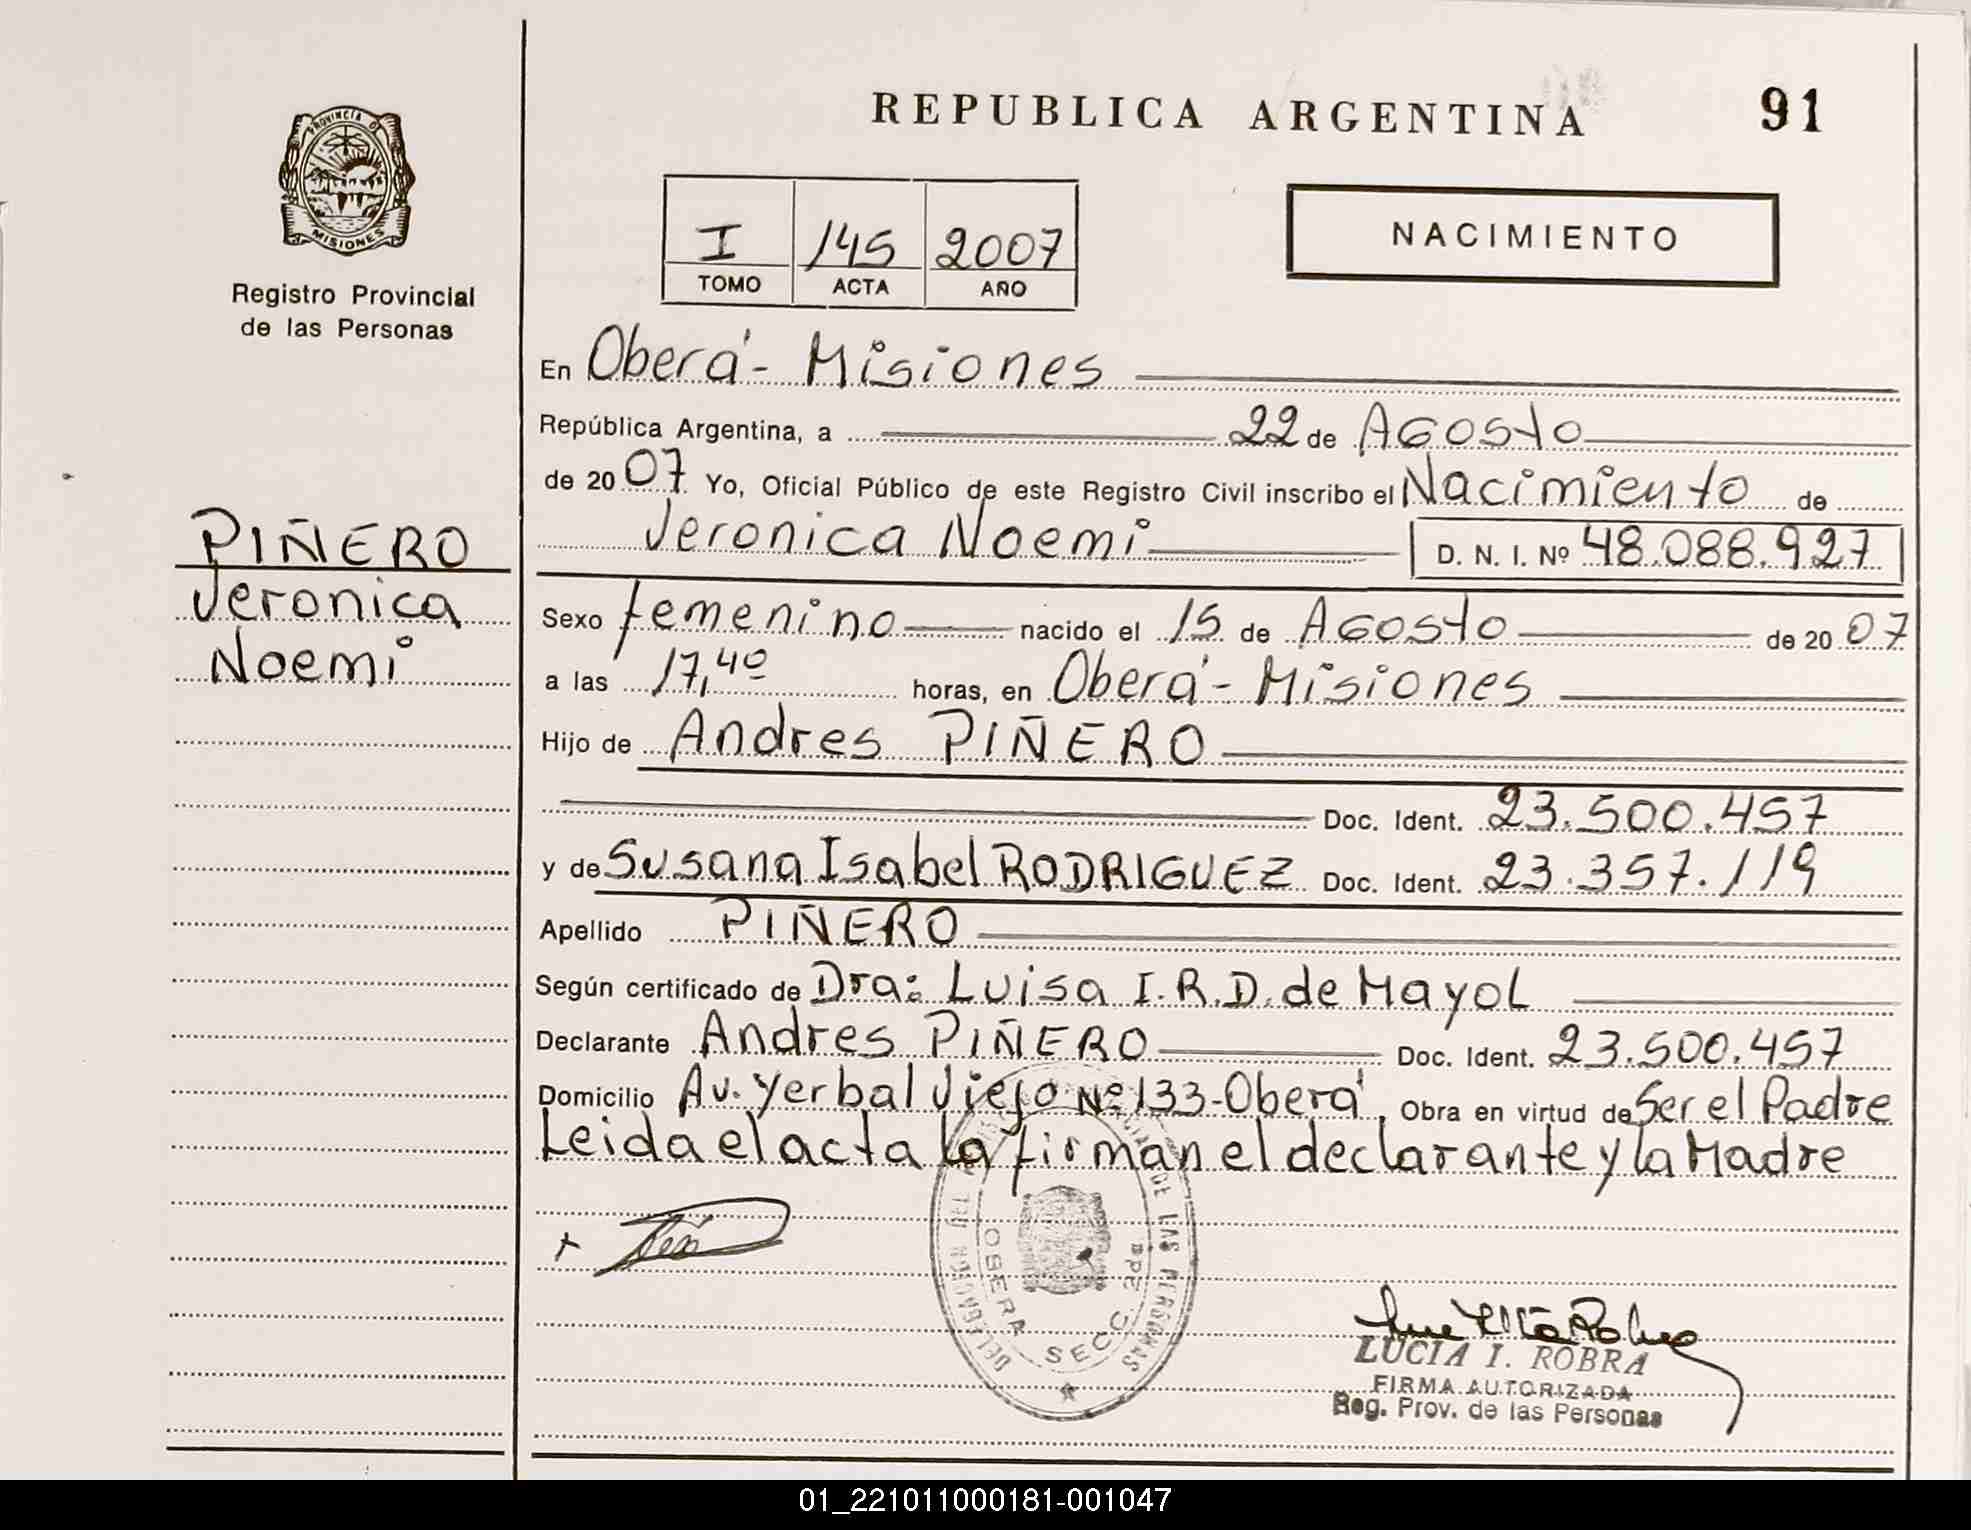 REPUBLICA ARGENTINA
91
PROVINCIA D
MISIONES
Registro Provincial
de las Personas
I 145 2007
TOMO ACTA AÑO
NACIMIENTO
En Oberá - Misiones
República Argentina, a 22 de Agosto
de 2007 Yo, Oficial Público de este Registro Civil inscribo el Nacimiento de
Veronica Noemi D. N. I. Nº 48.088.927
PIÑERO
Veronica
Noemi
Sexo femenino nacido el 15 de Agosto de 2007
a las 17,40 horas, en Oberá - Misiones
Hijo de Andres PIÑERO
Doc. Ident. 23.500.457
y de Susana Isabel RODRIGUEZ Doc. Ident. 23.357.119
Apellido PIÑERO
Según certificado de Dra: Luisa I.R.D. de Mayol
Declarante Andres PIÑERO Doc. Ident. 23.500.457
Domicilio Av. Yerbal Viejo Nº 133 - Oberá, Obra en virtud de Ser el Padre
Leida el acta la firman el declarante y la Madre
DE LAS PERSONAS
OBERA SECC. 2da
LUCIA I. ROBRA
FIRMA AUTORIZADA
Reg. Prov. de las Personas
01_221011000181-001047